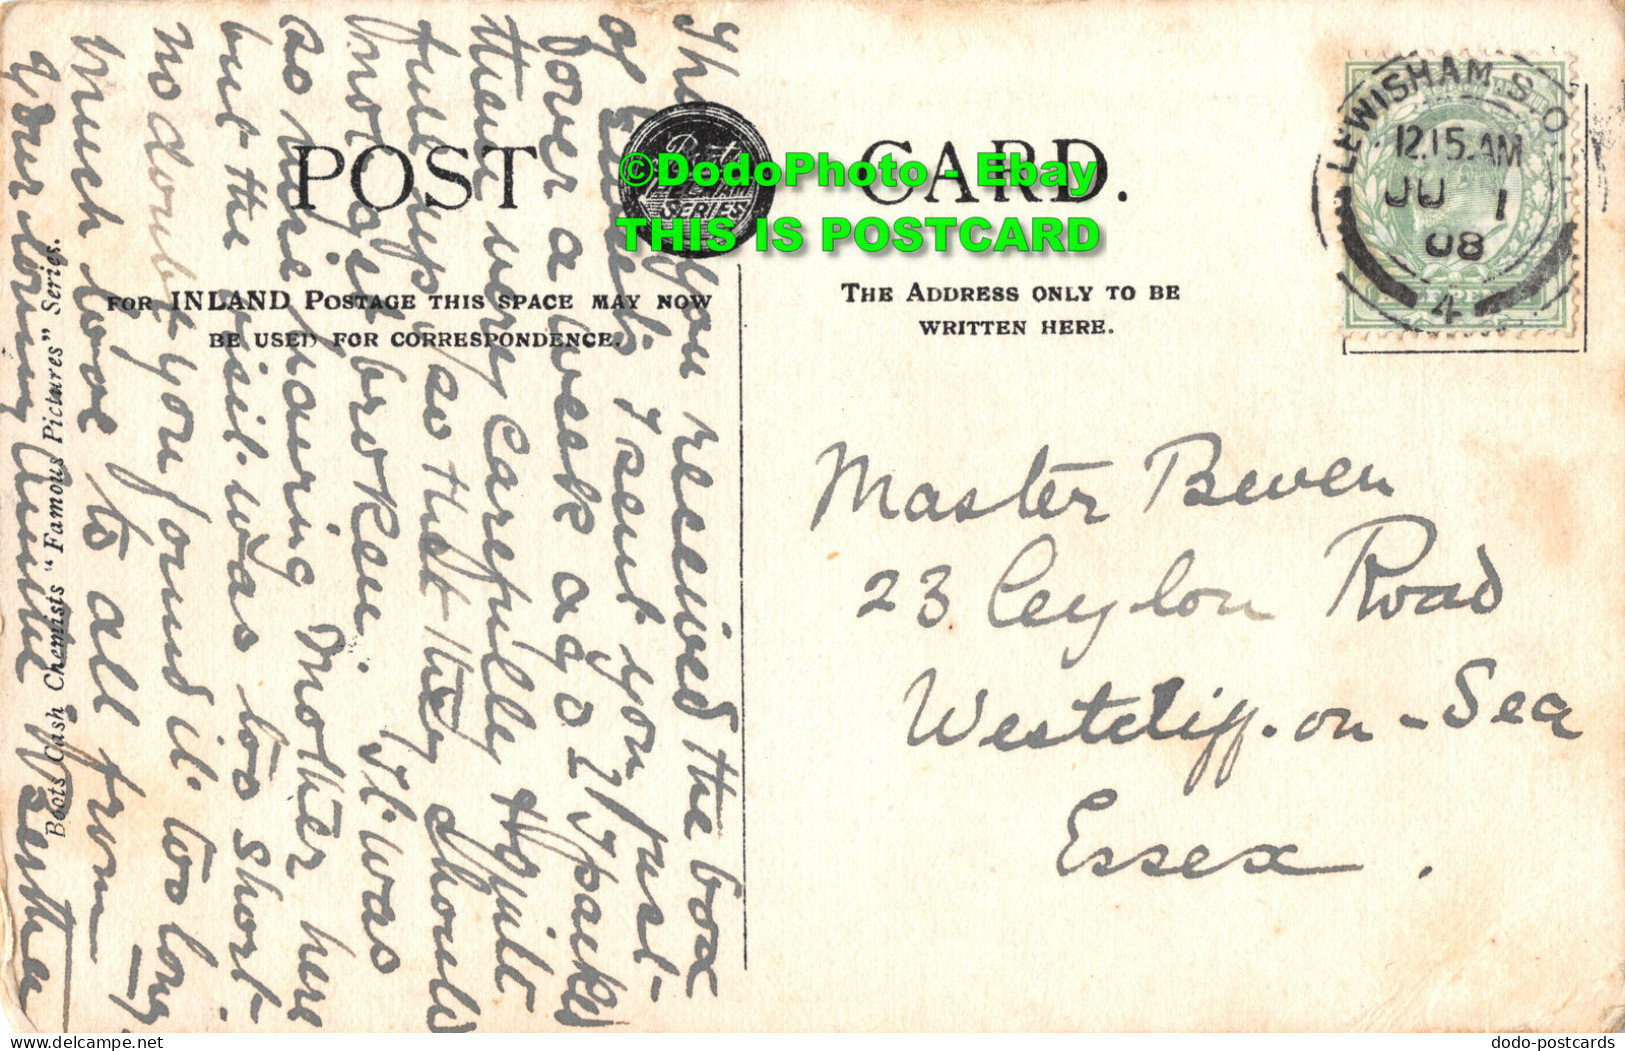 POST CARD.
Boots
SERIES
©DodoPhoto - Ebay
THIS IS POSTCARD
FOR INLAND POSTAGE THIS SPACE MAY NOW
BE USED FOR CORRESPONDENCE.
THE ADDRESS ONLY TO BE
WRITTEN HERE.
LEWISHAM S.O.
12.15 AM
JU 1
08
4
Master Beven
23 Ceylon Road
Westcliff-on-Sea
Essex.
you received the box
of I sent you just
over a week ago & I packed
them very carefully & quite
full up so that they should
not get broken. It was
so nice having Mother here
but the visit was too short
no doubt you found it too long
much love to all from
Your loving Auntie
Boots Cash Chemists "Famous Pictures" Series.
hippostcard.com
dodo-postcards